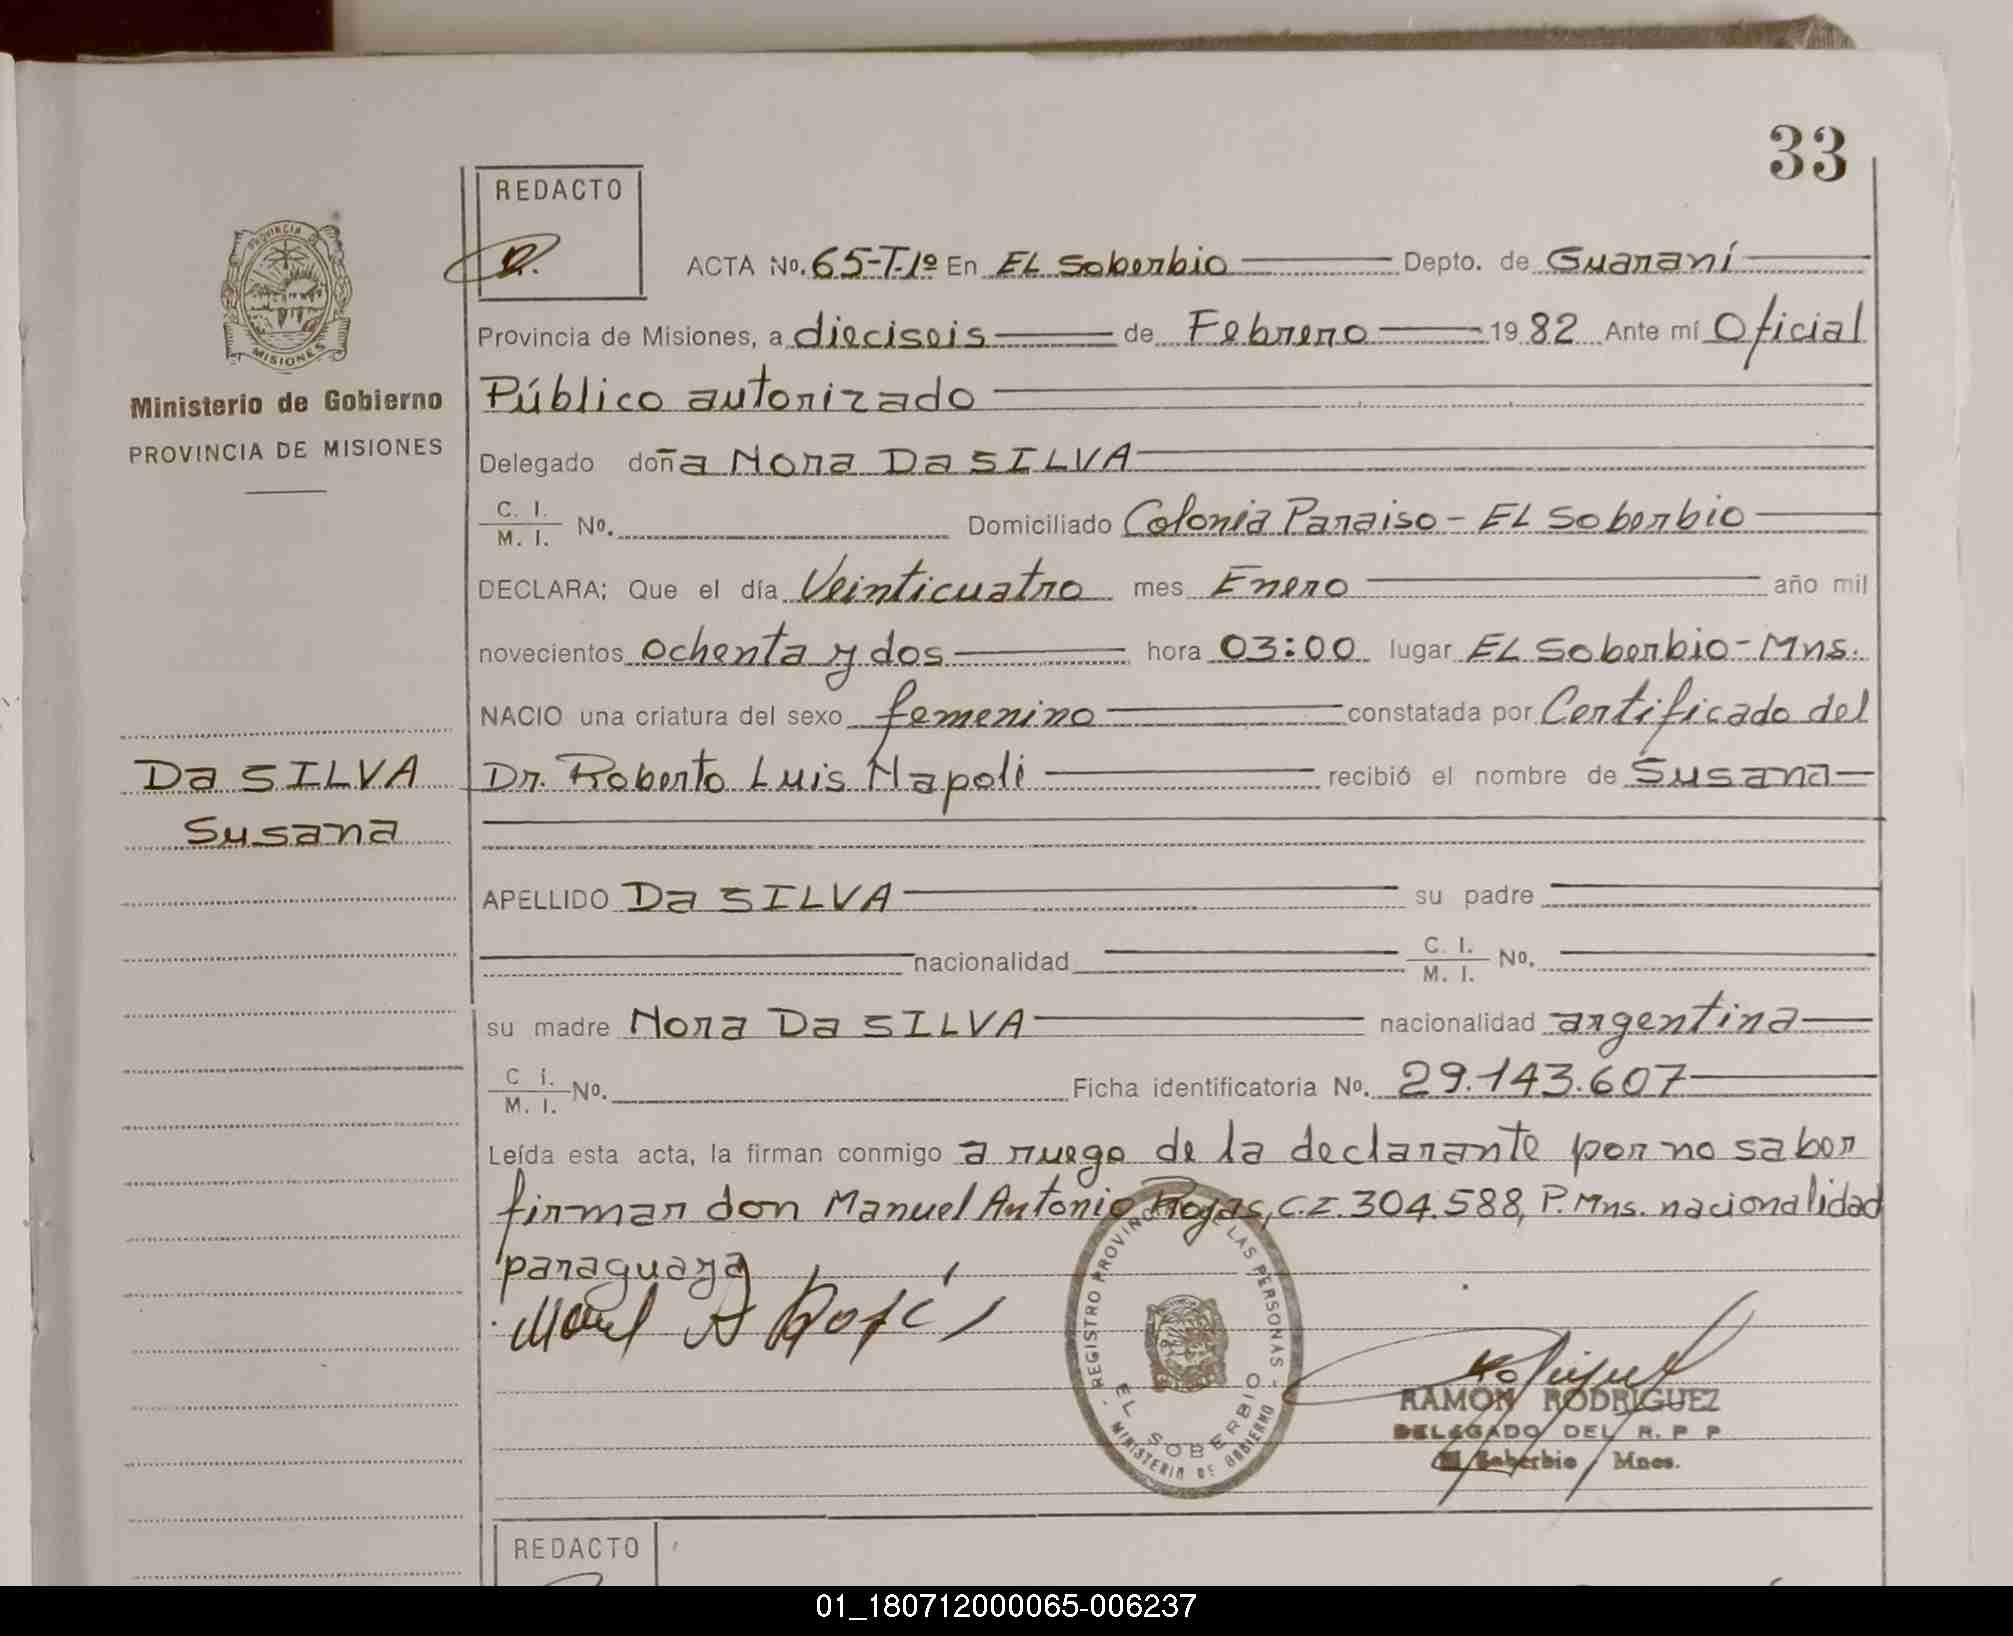 33
REDACTO
PROVINCIA DE
MISIONES
Ministerio de Gobierno
PROVINCIA DE MISIONES
ACTA No. 65-T.1º En EL Soberbio Depto. de Guaraní
Provincia de Misiones, a dieciseis de Febrero 1982 Ante mí Oficial
Público autorizado
Delegado doña Nora Da SILVA
C. I.
M. I. No. Domiciliado Colonia Paraiso - EL Soberbio
DECLARA; Que el día Veinticuatro mes Enero año mil
novecientos ochenta y dos hora 03:00 lugar EL Soberbio - Mns.
NACIO una criatura del sexo femenino constatada por Certificado del
Dr. Roberto Luis Napoli recibió el nombre de Susana
Da SILVA
Susana
APELLIDO Da SILVA su padre
nacionalidad C. I.
M. I. No.
su madre Nora Da SILVA nacionalidad argentina
C i.
M. I. No. Ficha identificatoria No. 29.143.607
Leída esta acta, la firman conmigo a ruego de la declarante por no saber
firmar don Manuel Antonio Rojas, C.I. 304.588, P. Mns. nacionalidad
paraguaya
REGISTRO PROVINCIAL DE LAS PERSONAS -
EL SOBERBIO
MINISTERIO DE GOBIERNO
RAMON RODRIGUEZ
DELEGADO DEL R. P P
Soberbio Mnes.
REDACTO
01_180712000065-006237